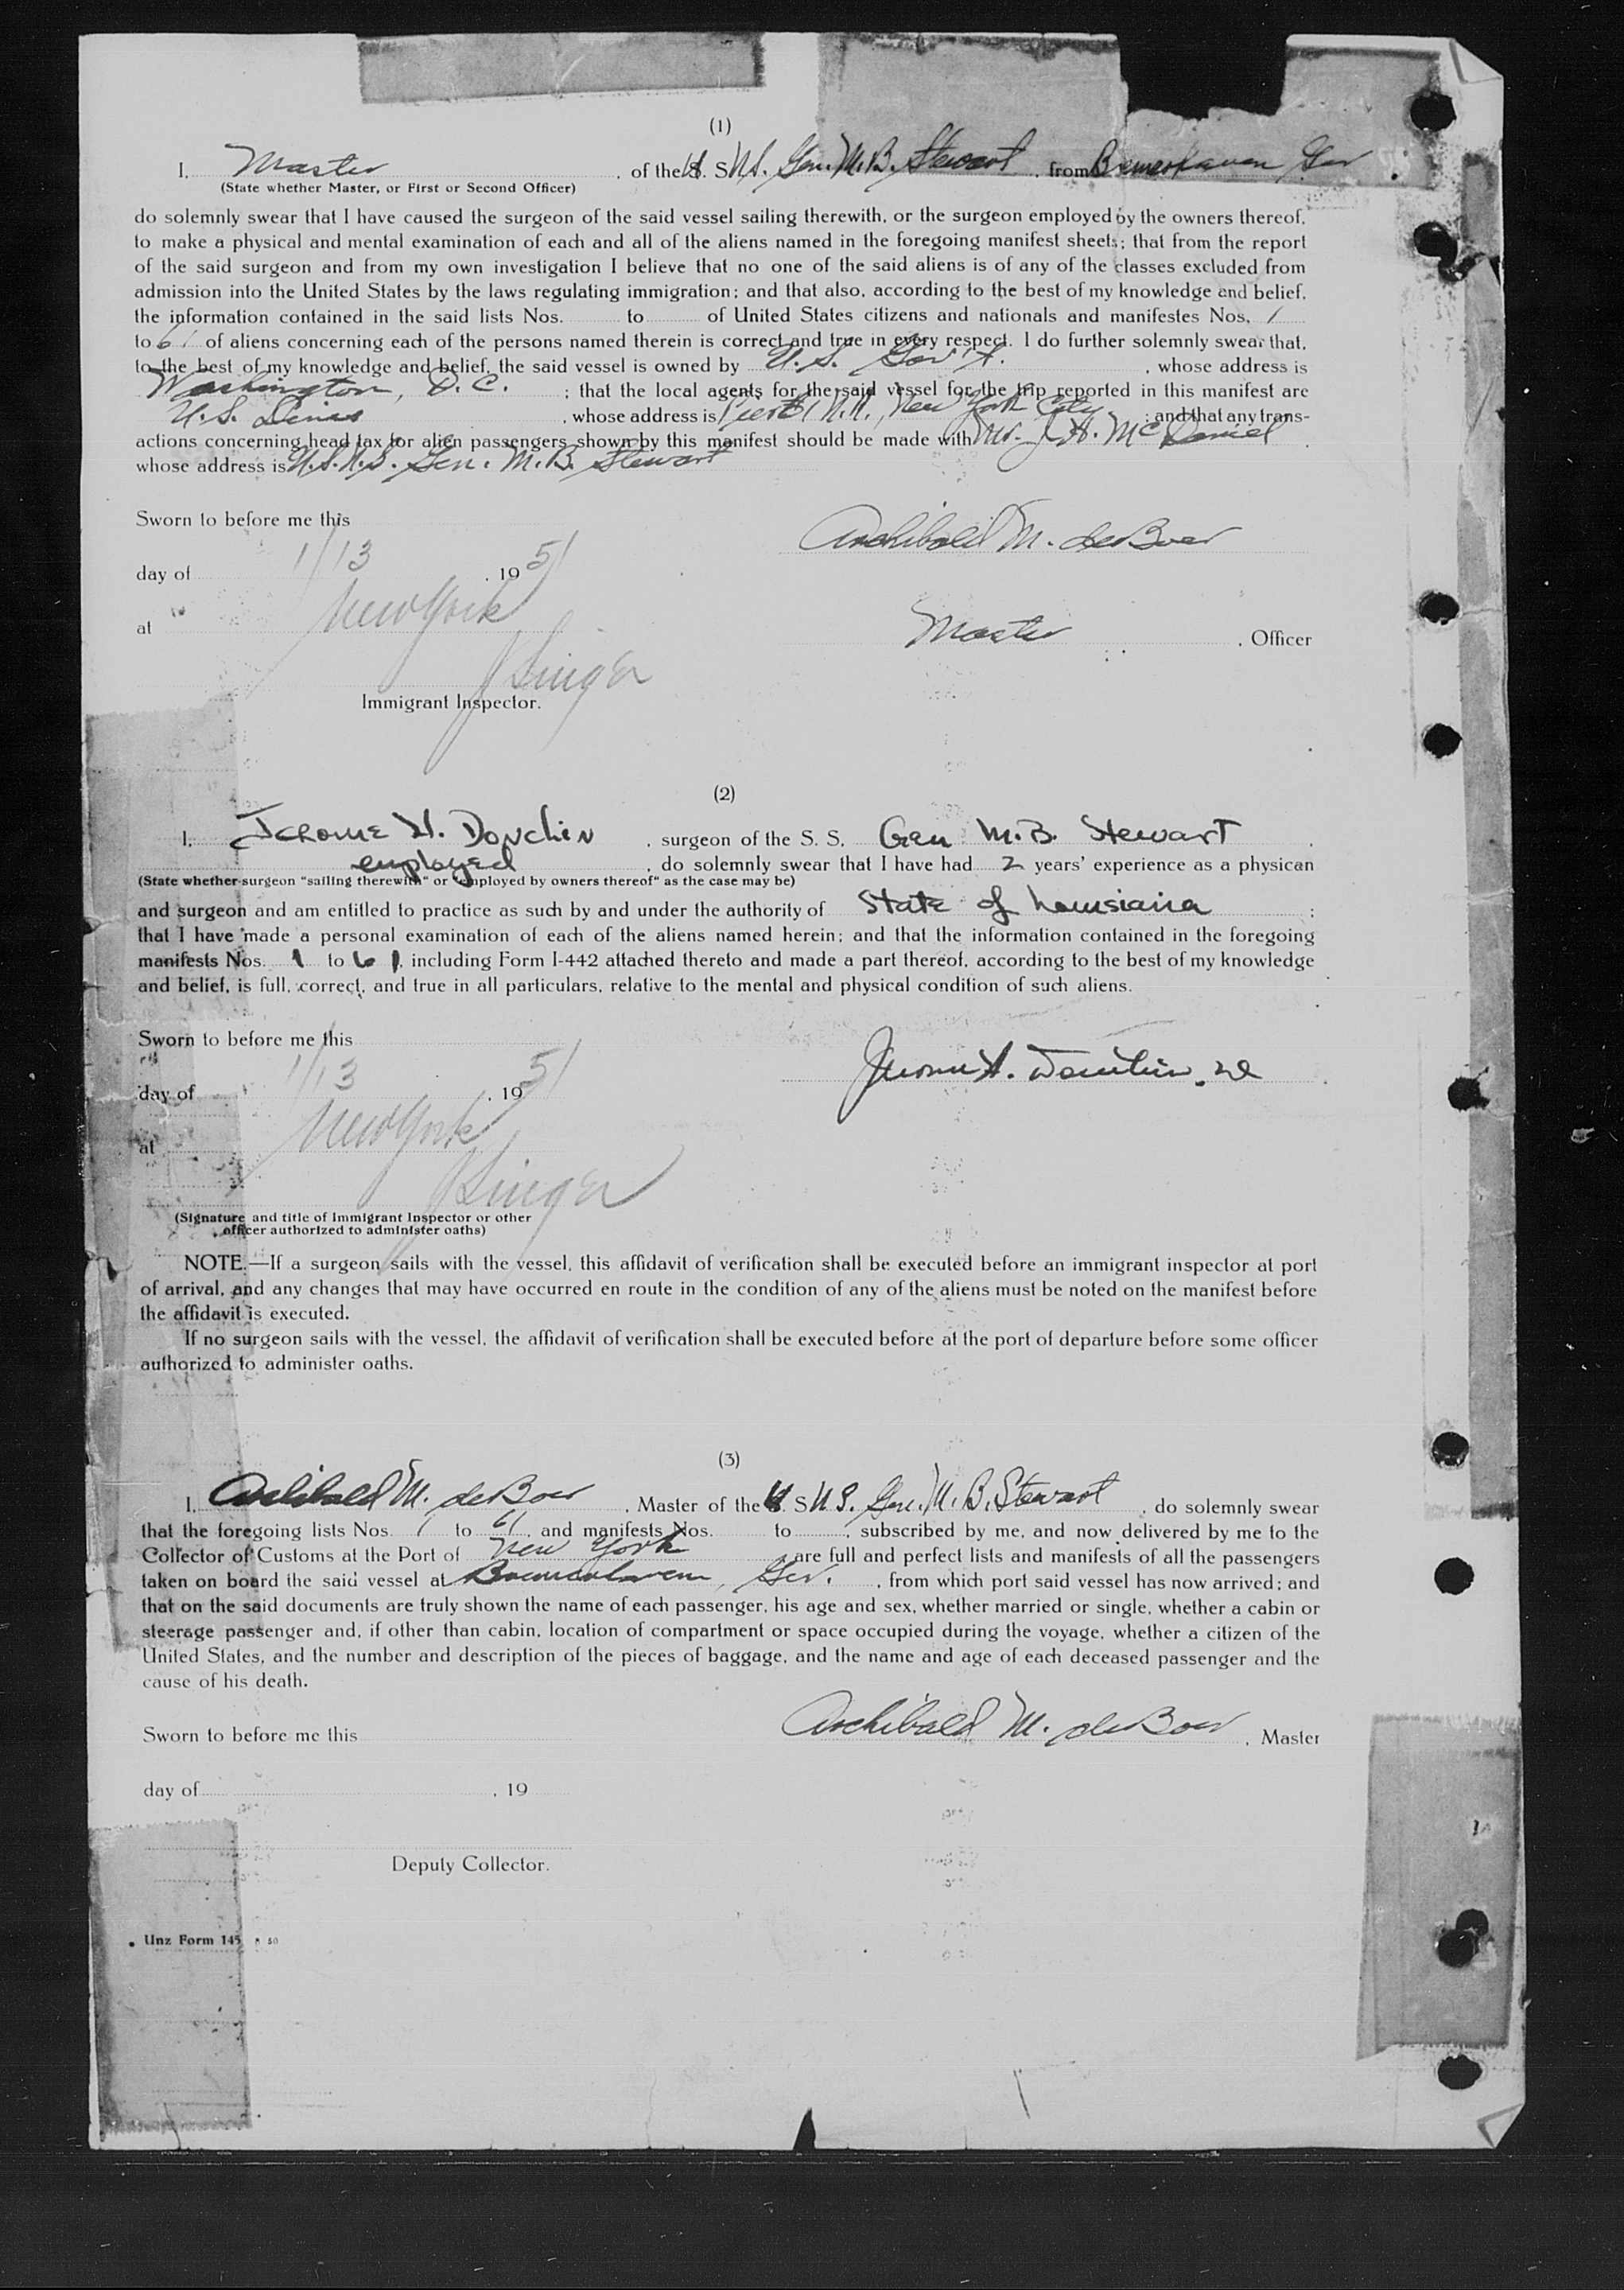 (1)
I, Master , of the U. S. N. S. Gen. M. B. Stewart , from Bremerhaven Ger .
(State whether Master, or First or Second Officer)
do solemnly swear that I have caused the surgeon of the said vessel sailing therewith, or the surgeon employed by the owners thereof,
to make a physical and mental examination of each and all of the aliens named in the foregoing manifest sheets; that from the report
of the said surgeon and from my own investigation I believe that no one of the said aliens is of any of the classes excluded from
admission into the United States by the laws regulating immigration; and that also, according to the best of my knowledge and belief,
the information contained in the said lists Nos. to of United States citizens and nationals and manifestes Nos. 1
to 61 of aliens concerning each of the persons named therein is correct and true in every respect. I do further solemnly swear that,
to the best of my knowledge and belief, the said vessel is owned by U. S. Gov't. , whose address is
Washington, D. C. ; that the local agents for the said vessel for the trip reported in this manifest are
U.S. Lines , whose address is Pier 61 N.R., New York City ; and that any trans-
actions concerning head tax for alien passengers shown by this manifest should be made with Mr. J. H. McDaniel .
whose address is U.S.N.S. Gen. M. B. Stewart
Sworn to before me this
Archibald M. deBoer
1/13
day of , 19 51
New York
at
Master , Officer
J Singer
Immigrant Inspector.
(2)
I, Jerome H. Donchin , surgeon of the S. S. Gen M.B. Stewart .
employed , do solemnly swear that I have had 2 years' experience as a physican
(State whether surgeon "sailing therewith" or "employed by owners thereof" as the case may be)
and surgeon and am entitled to practice as such by and under the authority of State of Louisiana ;
that I have made a personal examination of each of the aliens named herein; and that the information contained in the foregoing
manifests Nos. 1 to 61, including Form I-442 attached thereto and made a part thereof, according to the best of my knowledge
and belief, is full, correct, and true in all particulars, relative to the mental and physical condition of such aliens.
Sworn to before me this
Jerome H. Donchin
1/13
day of , 19 51
New York
at
J Singer
(Signature and title of Immigrant Inspector or other
officer authorized to administer oaths)
NOTE.—If a surgeon sails with the vessel, this affidavit of verification shall be executed before an immigrant inspector at port
of arrival, and any changes that may have occurred en route in the condition of any of the aliens must be noted on the manifest before
the affidavit is executed.
If no surgeon sails with the vessel, the affidavit of verification shall be executed before at the port of departure before some officer
authorized to administer oaths.
(3)
I, Archibald M. deBoer , Master of the U. S. N. S. Gen. M. B. Stewart , do solemnly swear
that the foregoing lists Nos. 1 to 61 , and manifests Nos. to , subscribed by me, and now delivered by me to the
Collector of Customs at the Port of New York , are full and perfect lists and manifests of all the passengers
taken on board the said vessel at Bremerhaven, Ger. , from which port said vessel has now arrived; and
that on the said documents are truly shown the name of each passenger, his age and sex, whether married or single, whether a cabin or
steerage passenger and, if other than cabin, location of compartment or space occupied during the voyage, whether a citizen of the
United States, and the number and description of the pieces of baggage, and the name and age of each deceased passenger and the
cause of his death.
Archibald M. deBoer , Master
Sworn to before me this
day of , 19
Deputy Collector.
Unz Form 145